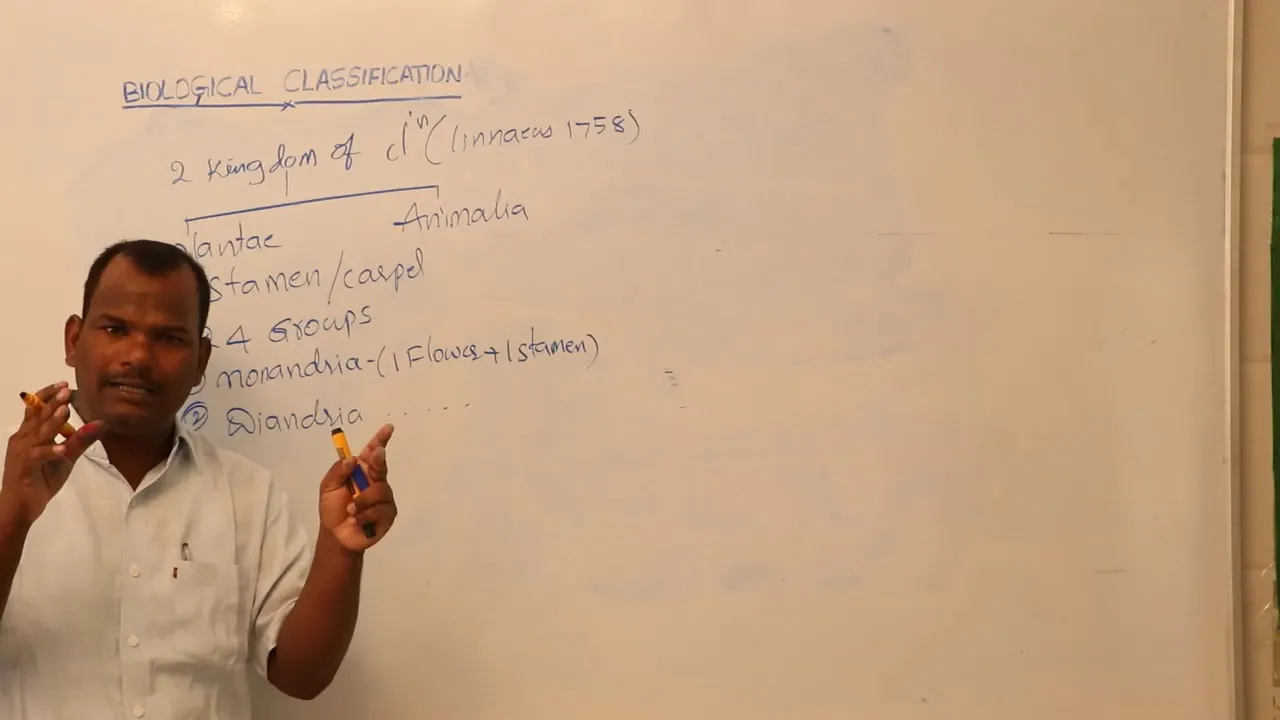 BIOLOGICAL CLASSIFICATION
2 Kingdom of clⁿ (linnaeus 1758)
lantae Animalia
stamen/carpel
24 Groups
monandria-(1 Flower+1 stamen)
② Diandria ......